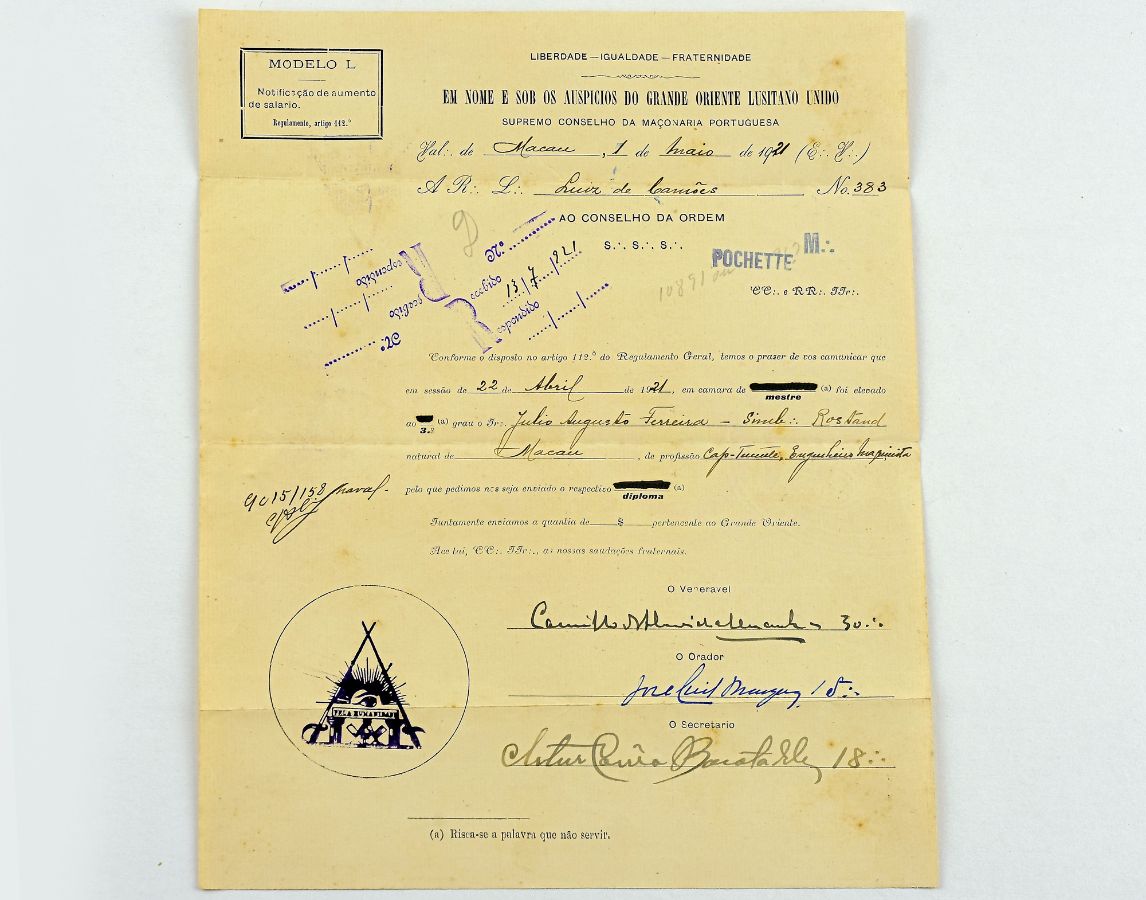 MODELO L
Notificação de aumento
de salario.
Regulamento, artigo 112.º
LIBERDADE — IGUALDADE — FRATERNIDADE
EM NOME E SOB OS AUSPICIOS DO GRANDE ORIENTE LUSITANO UNIDO
SUPREMO CONSELHO DA MAÇONARIA PORTUGUESA
Val∴ de Macau, 1 de Maio de 1921 (E∴ V∴)
A R∴ L∴ Luiz de Camões No. 383
AO CONSELHO DA ORDEM
S∴ S∴ S∴
POCHETTE M∴
CC∴ e RR∴ IIr∴
N.º
Recebido 13/7/921
Respondido
Respondido
Recebido
N.º
Conforme o disposto no artigo 112.º do Regulamento Geral, temos o prazer de vos comunicar que
em sessão de 22 de Abril de 1921, em camara de mestre (a) foi elevado
ao 3.º (a) grau o Ir∴ Julio Augusto Ferreira — Simb∴ Rostand
natural de Macau, de profissão Cap-Tenente, Engenheiro Maquinista
naval.
9015/158
pelo que pedimos nos seja enviado o respectivo diploma (a)
Juntamente enviamos a quantia de $ pertencente ao Grande Oriente.
Aceitai, CC∴ IIr∴, as nossas saudações fraternais.
O Veneravel
30∴
O Orador
18∴
O Secretario
Artur 18∴
PELA HUMANIDADE
(a) Risca-se a palavra que não servir.